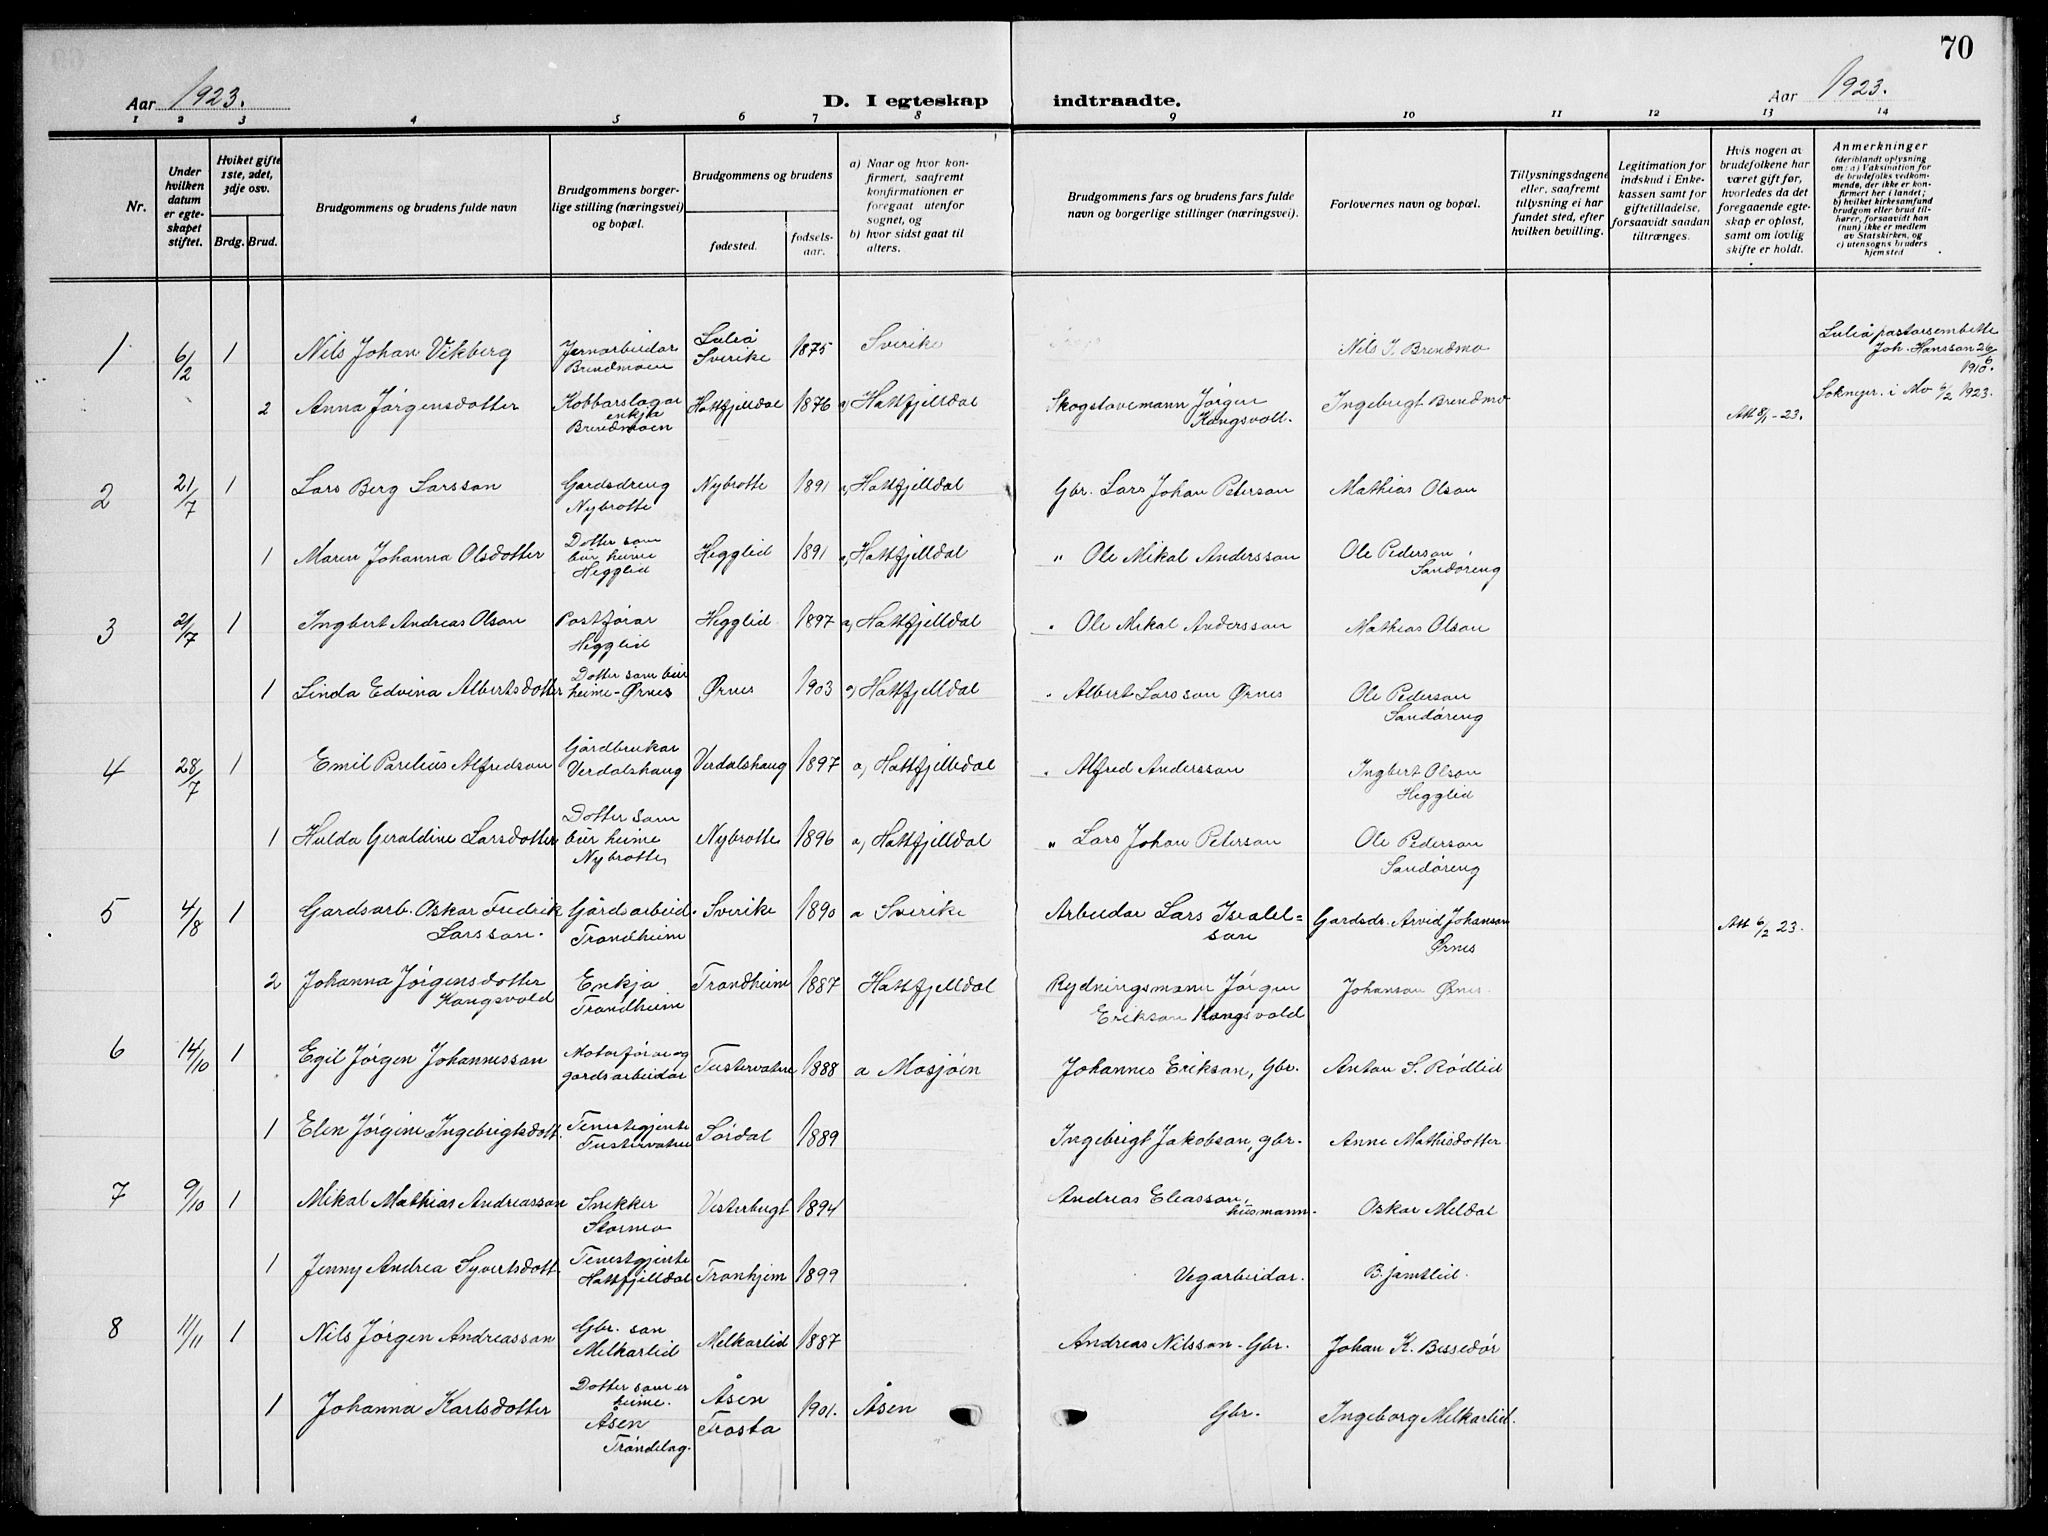 70
Aar 1923.
D. I egteskap indtraadte.
Aar 1923.
1 2 3 4 5 6 7 8 9 10 11 12 13 14
Nr.
Under hvilken datum er egteskapet stiftet.
Hviket gifte 1ste, 2det, 3dje osv.
Brdg. Brud.
Brudgommens og brudens fulde navn
Brudgommens borgerlige stilling (næringsvei) og bopæl.
Brudgommens og brudens
fødested.
fødselsaar.
a) Naar og hvor konfirmert, saafremt konfirmationen er foregaat utenfor sognet, og
b) hvor sidst gaat til alters.
Brudgommens fars og brudens fars fulde navn og borgerlige stillinger (næringsvei).
Forlovernes navn og bopæl.
Tillysningsdagene eller, saafremt tillysning ei har fundet sted, efter hvilken bevilling.
Legitimation for indskud i Enkekassen samt for giftetilladelse, forsaavidt saadan tiltrænges.
Hvis nogen av brudefolkene har været gift før, hvorledes da det foregaaende egteskap er opløst, samt om lovlig skifte er holdt.
Anmerkninger
(deriblandt oplysning om: a) Vaksination for de brudefolks vedkommende, der ikke er konfirmert her i landet; b) hvilket kirkesamfund brudgom eller brud tilhører, forsaavidt han (hun) ikke er medlem av Statskirken, og c) utensogns bruders hjemsted
1 6/2 1 Nils Johan Vikberg Jernarbeidar Brendmoen Luleå Sverike 1875 Sverike Nils J. Brendmo Luleå pastorsembette Joh. Hansson 26/6 1910.
2 Anna Jørgensdotter Kobbarslagar enkja Brendmoen Hattfjelldal 1876 a) Hattfjelldal Skogstovemann Jørgen Kongsvold. Ingebrigt Brendmo Att 8/1-23. Sokneper. i Mo 6/2 1923.
2 21/7 1 Lars Berg Larsson Gardsdreng Nybrotte Nybrotte 1891 a, Hattfjelldal Gbr. Lars Johan Peterson Mathias Olson
1 Maren Johanna Olsdotter Dotter som bur heime Hegglid Hegglid 1891 a, Hattfjelldal " Ole Mikal Andersson Ole Pederson Sandøreng
3 21/7 1 Ingbert Andreas Olson Postførar Hegglid Hegglid 1897 a, Hattfjelldal " Ole Mikal Andersson Mathias Olson
1 Linda Edvina Albertsdotter Dotter som bur heime-Ørnes Ørnes 1903 a) Hattfjelldal " Albert Larsson Ørnes Ole Pederson Sandøreng
4 28/7 1 Emil Parelius Alfredson Gårdbrukar Verdalshaug Verdalshaug 1897 a, Hattfjelldal " Alfred Andersson Ingbert Olson Hegglid
1 Hulda Geraldine Larsdotter Dotter som bur heime Nybrotte Nybrotte 1896 a, Hattfjelldal " Lars Johan Peterson Ole Pederson Sandøreng
5 4/8 1 Gardsarb. Oskar Fredrik Larsson. Gårdsarbeid. Trondheim Sverike 1890 a Sverike Arbeidar Lars Isealelson Gardsdr. Arvid Johanson Ørnes Att 6/2 23.
2 Johanna Jørgensdotter Kongsvold Enkja Trondheim Trondheim 1887 Hattfjelldal Rydningsmann Jørgen Erikson Kongsvold Johanson Ørnes.
6 14/10 1 Egil Jørgen Johannesson Motorførar og gardsarbeidar Tustervatne 1888 a Mosjøen Johannes Erikson, Gbr. Anton S. Rødlid
1 Elen Jørgine Ingebrigtsdott. Tenestgjente Tustervatne Sørdal 1889 Ingebrigt Jakobson, gbr. Anne Mathisdotter
7 9/10 1 Mikal Mathias Andreasson Snikker Stormo Vesterbugt 1894 Andreas Eleasson, husmann. Oskar Meldal
1 Jenny Andrea Syvertsdott. Tenestgjente Hattfjelldal Tronhjem 1899 Vegarbeidar. B. Jamtlid.
8 11/11 1 Nils Jørgen Andreasson Gbr. son Melkarlid Melkarlid 1887 Andreas Nilsson - Gbr. Johan K. Bessedør
1 Johanna Karlsdotter Dotter som er heime. Åsen Trøndelag. Åsen Frosta 1901. Åsen Gbr. Ingeborg Melkarlid.